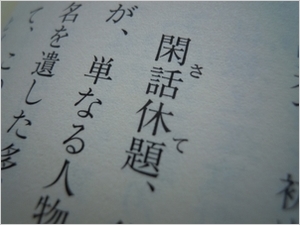 初
閑話休題、
さて
が、単なる人物
名を遺した多
て、